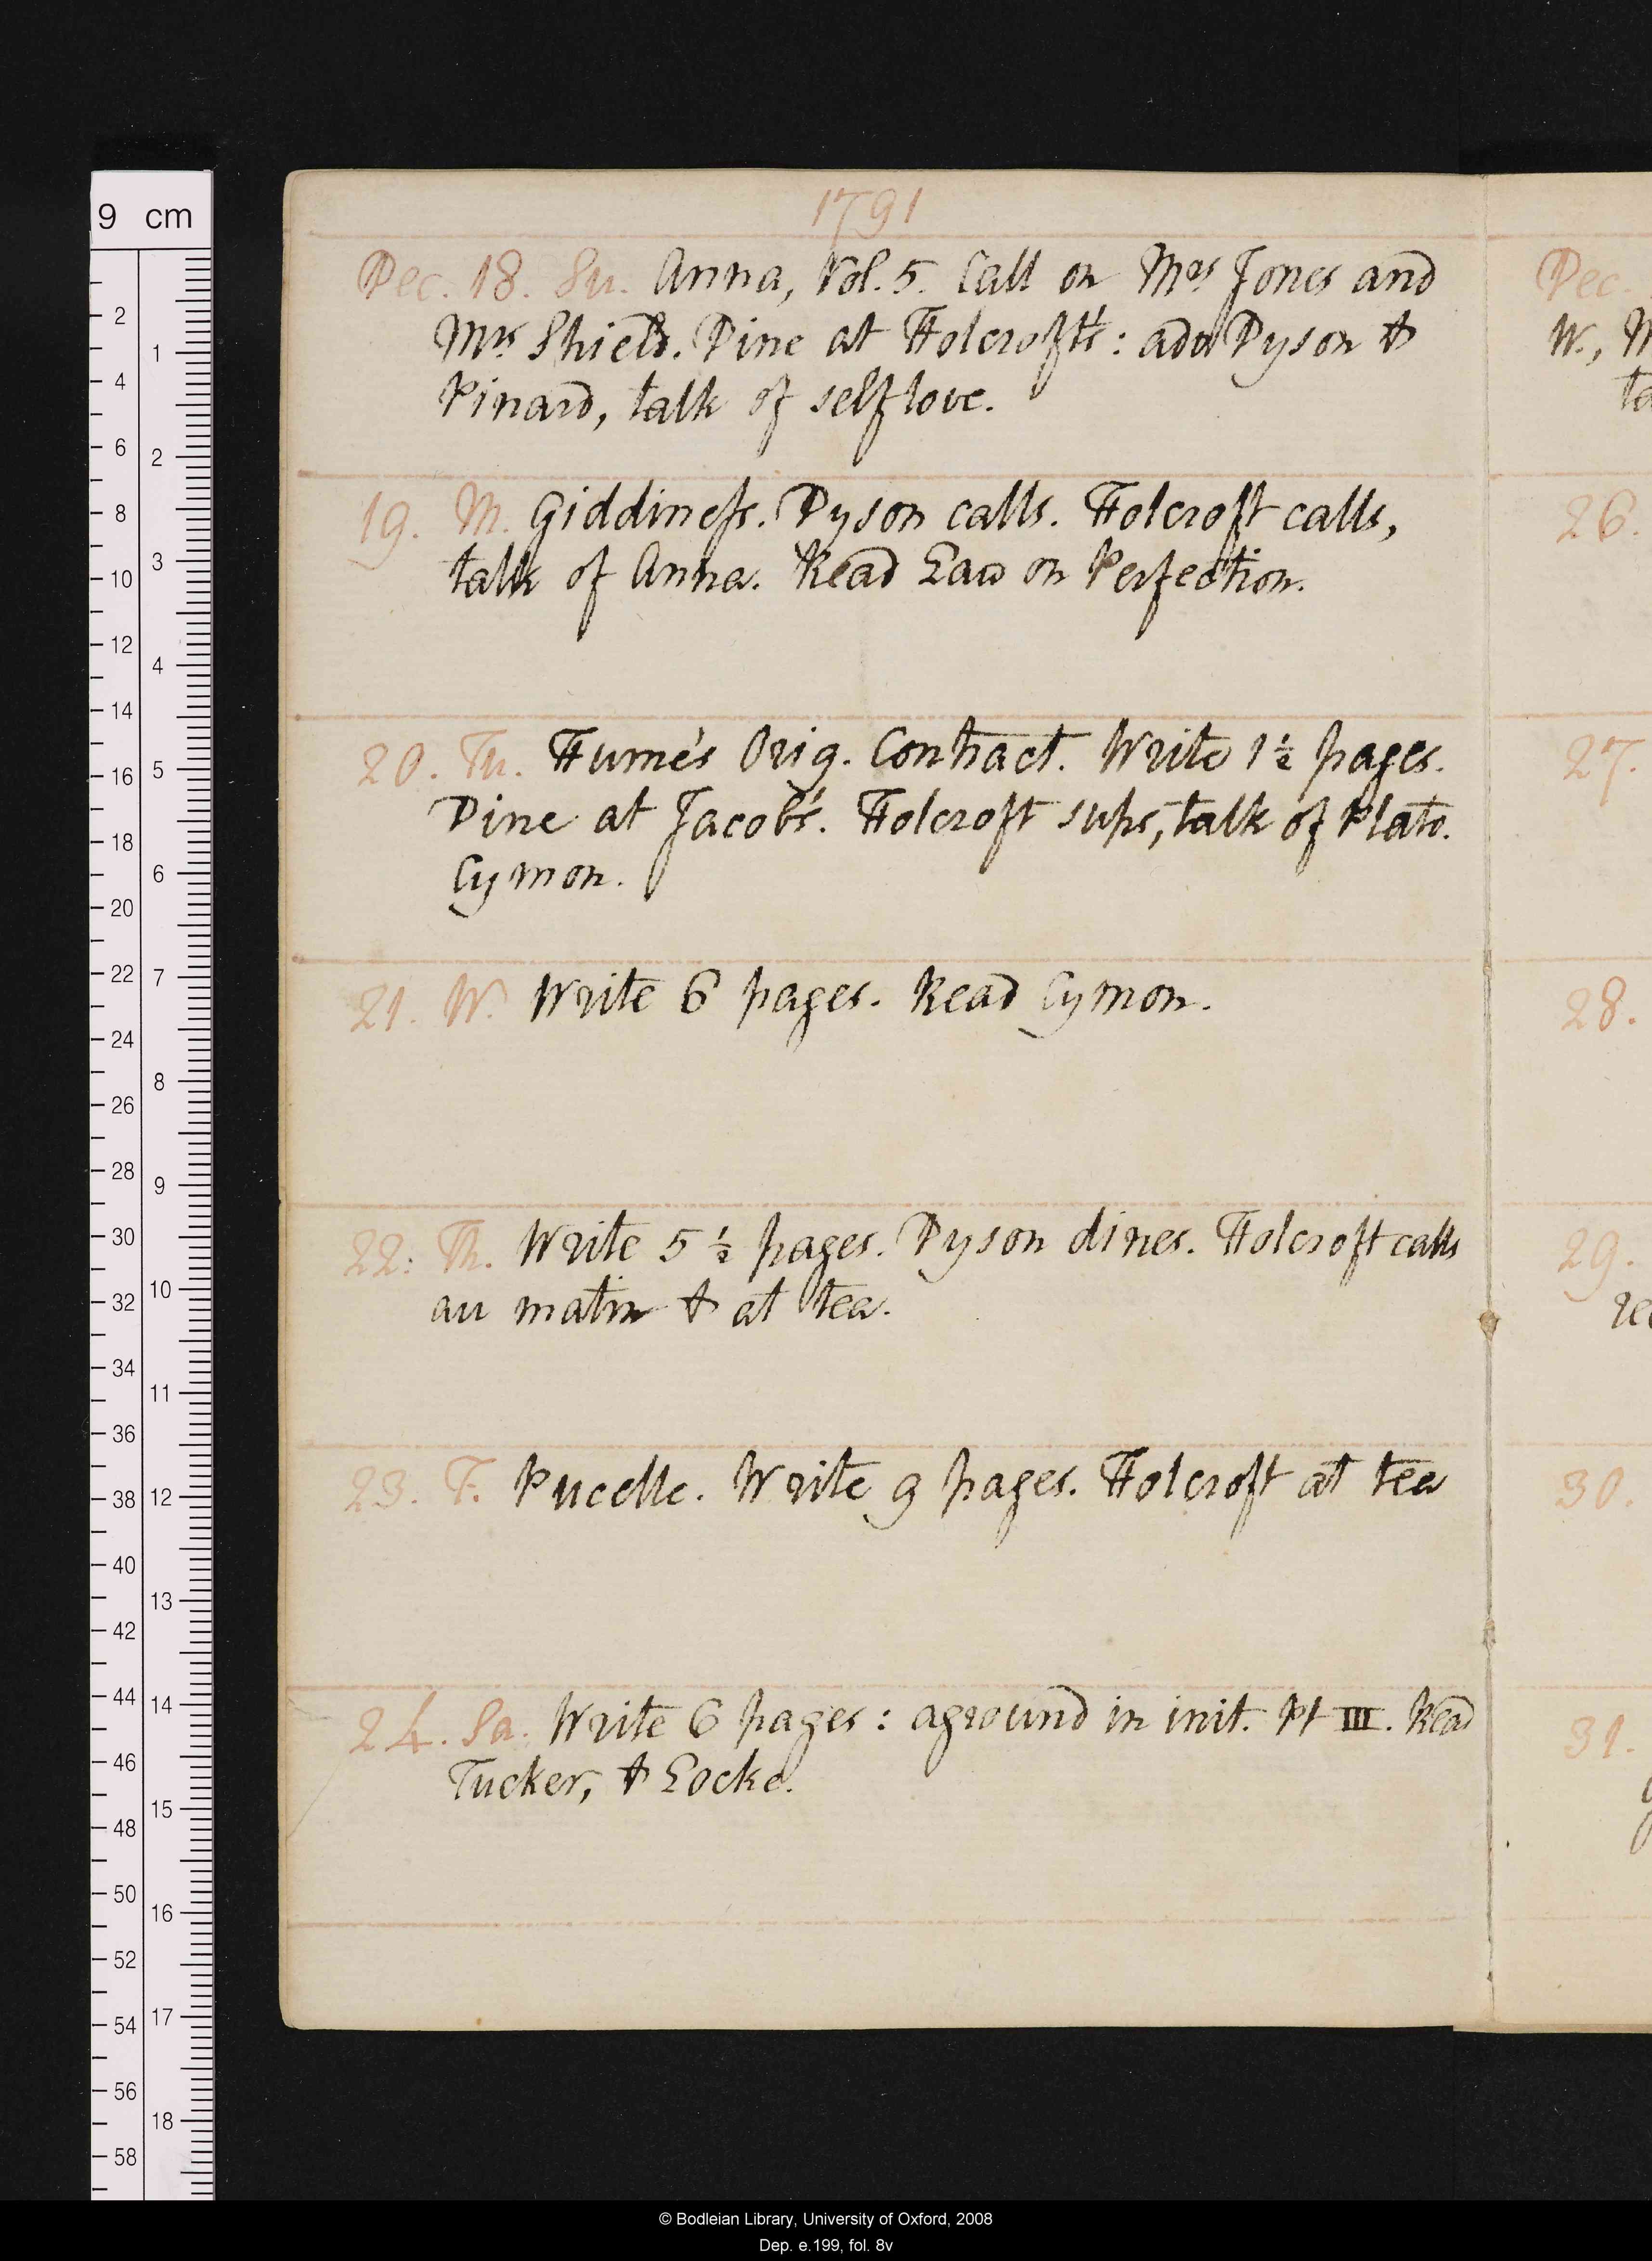 1791
Dec. 18. Su. Anna, Vol. 5. Call on Mrs Jones and
Mrs Shield. Dine at Holcroft's: adv Dyson &
Pinard, talk of self love.
19. M. Giddiness. Dyson calls. Holcroft calls,
talk of Anna. Read Law on Perfection.
20. Tu. Hume's Orig. Contract. Write 1½ pages.
Dine at Jacob's. Holcroft sups, talk of Plato.
Cymon.
21. W. Write 6 pages. Read Cymon.
22. Th. Write 5½ pages. Dyson dines. Holcroft calls
au matin & at tea.
23. F. Pucelle. Write 9 pages. Holcroft at tea
24. Sa. Write 6 pages: aground in init. Pt III. Read
Tucker, & Locke.
Dec.
W.,
26.
27.
28.
29.
30.
31.
9 cm
2
4
6
8
10
12
14
16
18
20
22
24
26
28
30
32
34
36
38
40
42
44
46
48
50
52
54
56
58
1
2
3
4
5
6
7
8
9
10
11
12
13
14
15
16
17
18
© Bodleian Library, University of Oxford, 2008
Dep. e.199, fol. 8v